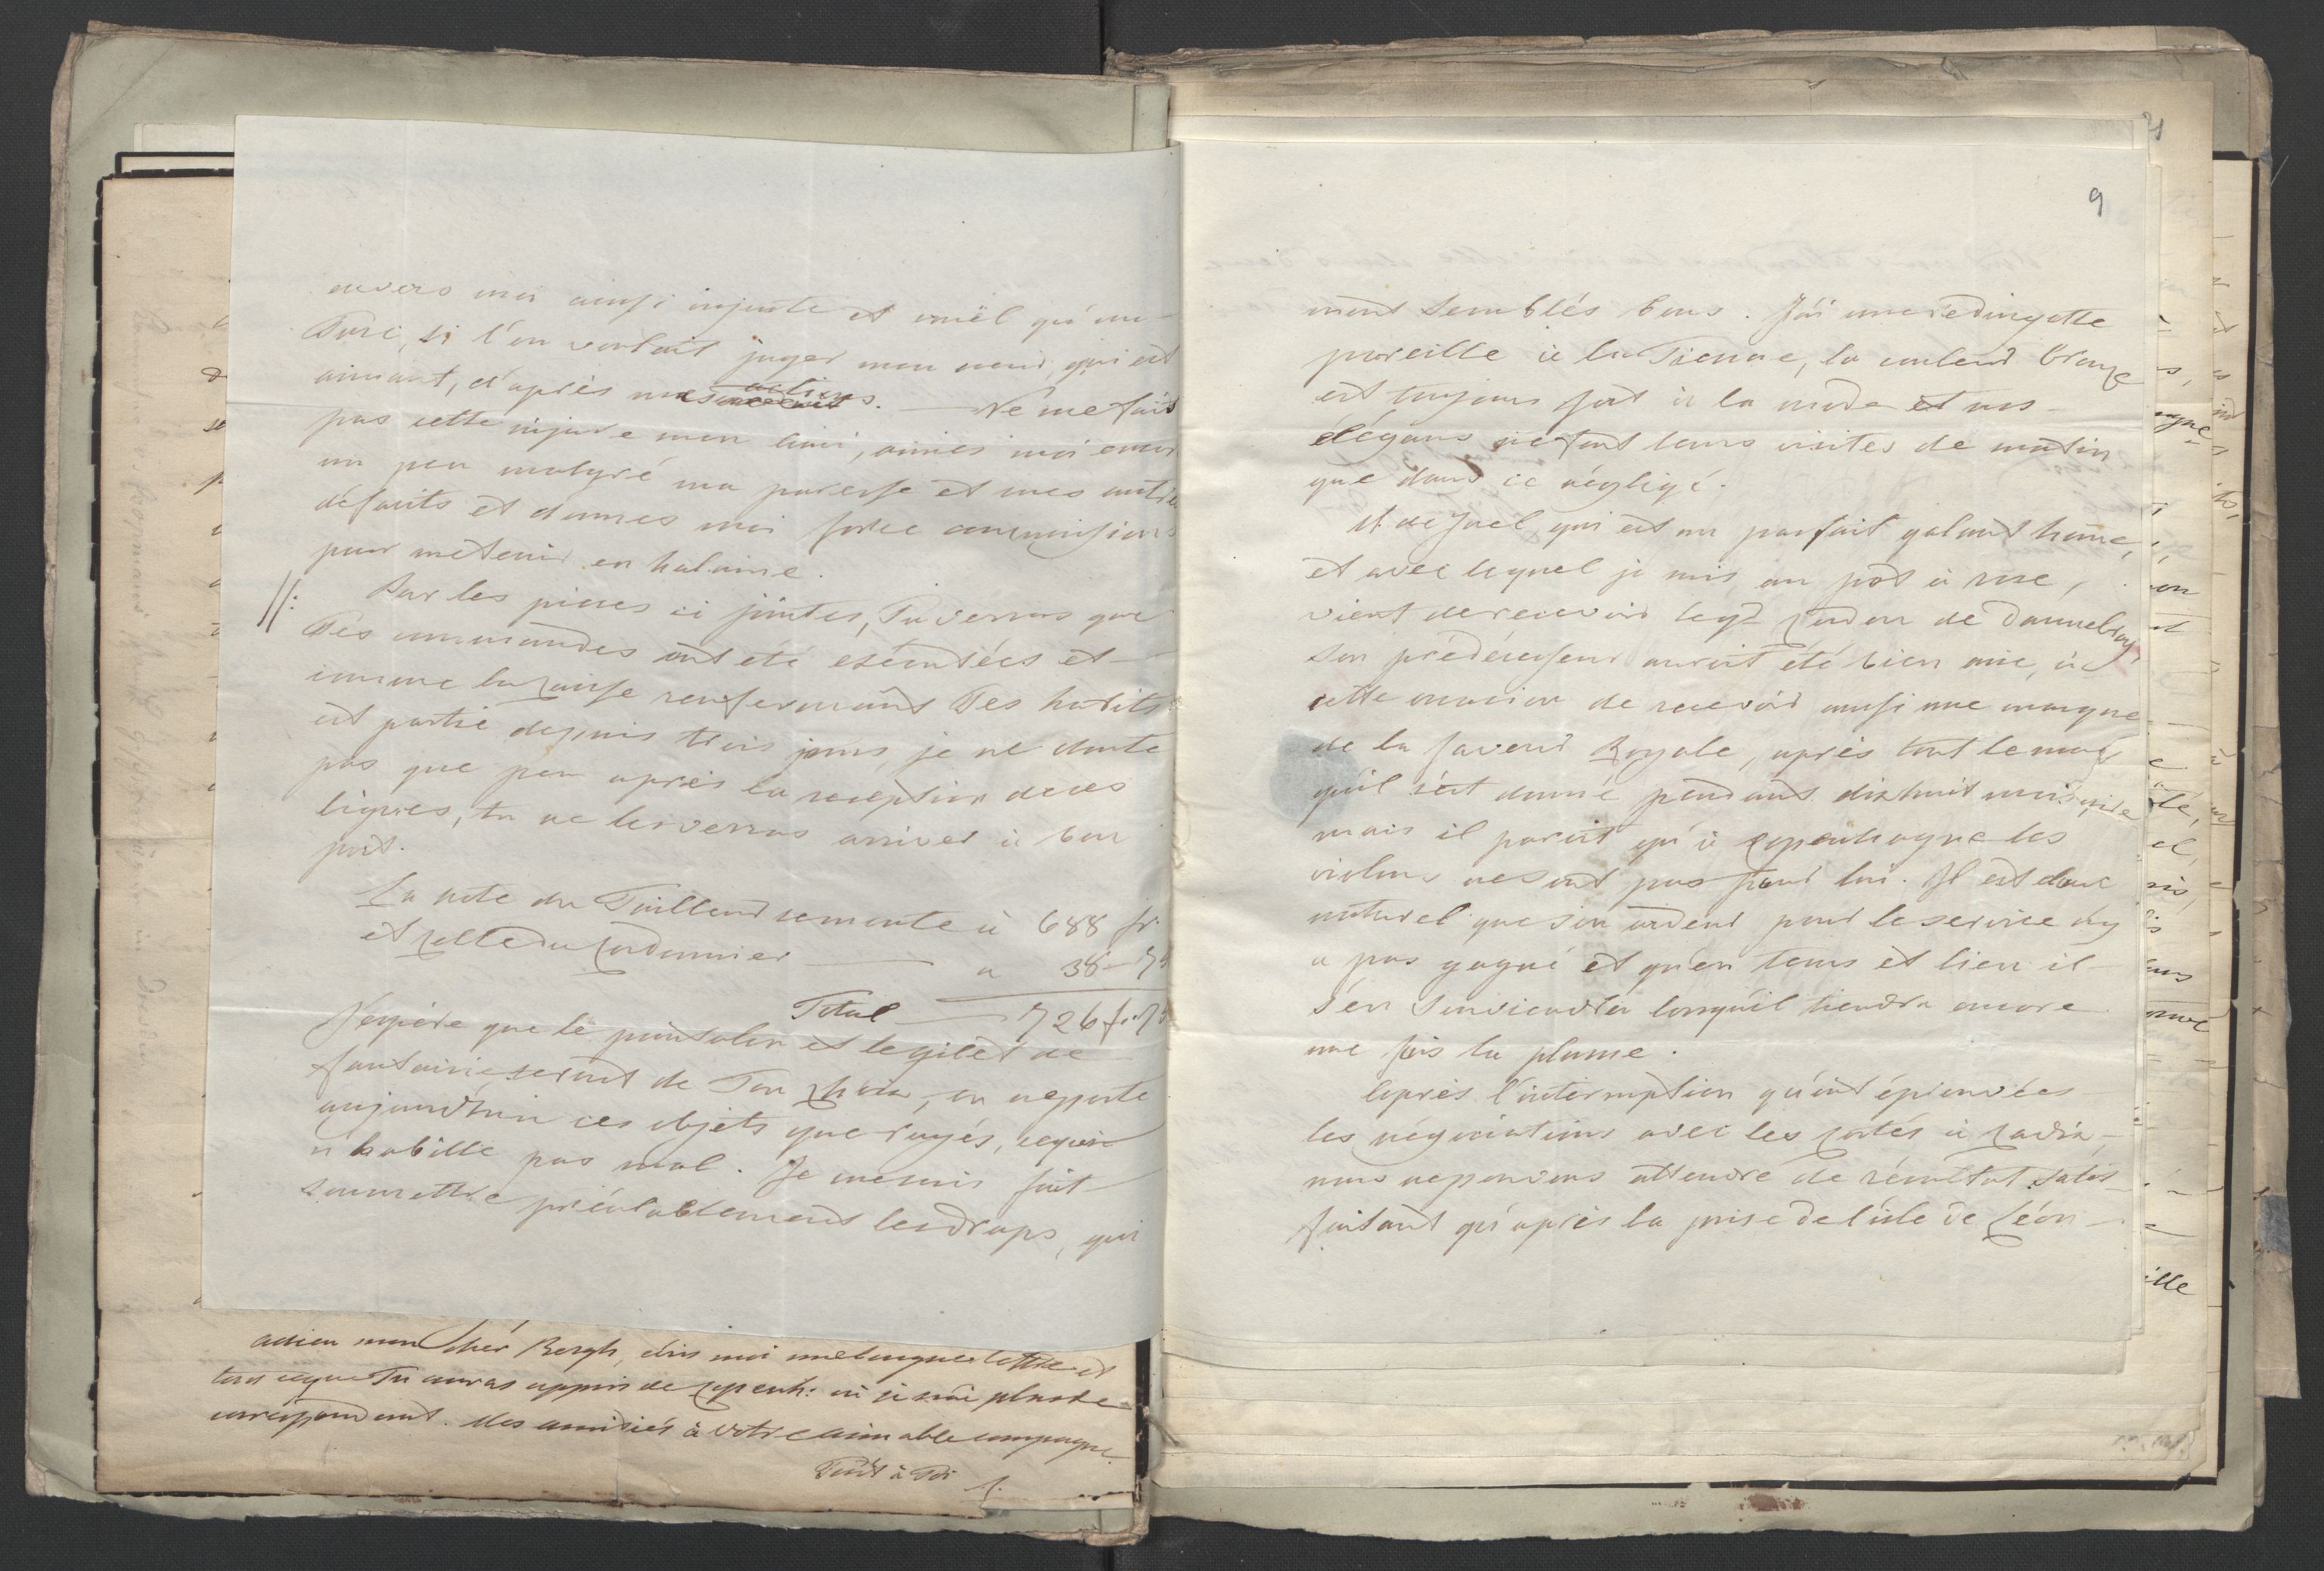 envers moi aussi injuste et cruël qu'un
Turc, si l'on voulait juger mon coeur, qui est
aimant, d'après mes actions. — Ne me fais
pas cette injure mon ami, aimes moi encor
un peu malgré ma paresse et mes autres
defauts et donnes moi force commissions
pour me tenir en halaine.
//: Par les pieces ci jointes, Tu verras que
Tes commandes ont été exécutées et
comme la caisse renfermant Tes habits
est partie depuis trois jours, je ne doute
pas que peu après la reception de ces
lignes, tu ne les verras arriver à bon
port.
La note du Tailleur se monte à 688 fr.
et celle du Cordonnier — a 38-75
Total — 726 fr. 75
J'espère que le pantalon et le gilet de
fantaisie seront de Ton choix, on ne porte
aujourd'hui ces objets que rayés, ce qui
n'habille pas mal. Je me suis fait
soumettre préalablement les draps, qui
adieu mon cher Bergh, écris moi une longue lettre et
tout ce que Tu auras appris de Copenh: où je n'ai plus de
correspondent. Mes amitiés à votre aimable compagne
Tout à Toi
J.
9
m'ont semblés bons. J'ai une redingotte
pareille à la Tienne, la couleur bronze
est toujours fort à la mode et nos
élégans ne font leurs visites de matin
que dans ce négligé.
M. de Juel, qui est un parfait galant home,
et avec lequel je suis au pot à rose,
vient de recevoir le gd Cordon de Dannebrog,
son prédécesseur auroit été bien aise, à
cette occasion de recevoir aussi une marque
de la faveur Royale, après tout le mal
qu'il s'est donné pendant dix huit mois
mais il paroit qu'à Copenhague les
violons ne sont pas pour lui. Il est donc
naturel que son ardeur pour le service n'y
a pas gagné et qu'en tems et lieu il
s'en souviendra lorsqu'il tiendra encore
une fois la plume.
Après l'interruption qu'ont éprouvées
les négociations avec les Cortés à Cadix,
nous ne pouvons attendre de résultat satis-
faisant qu'après la prise de l'isle de Léon